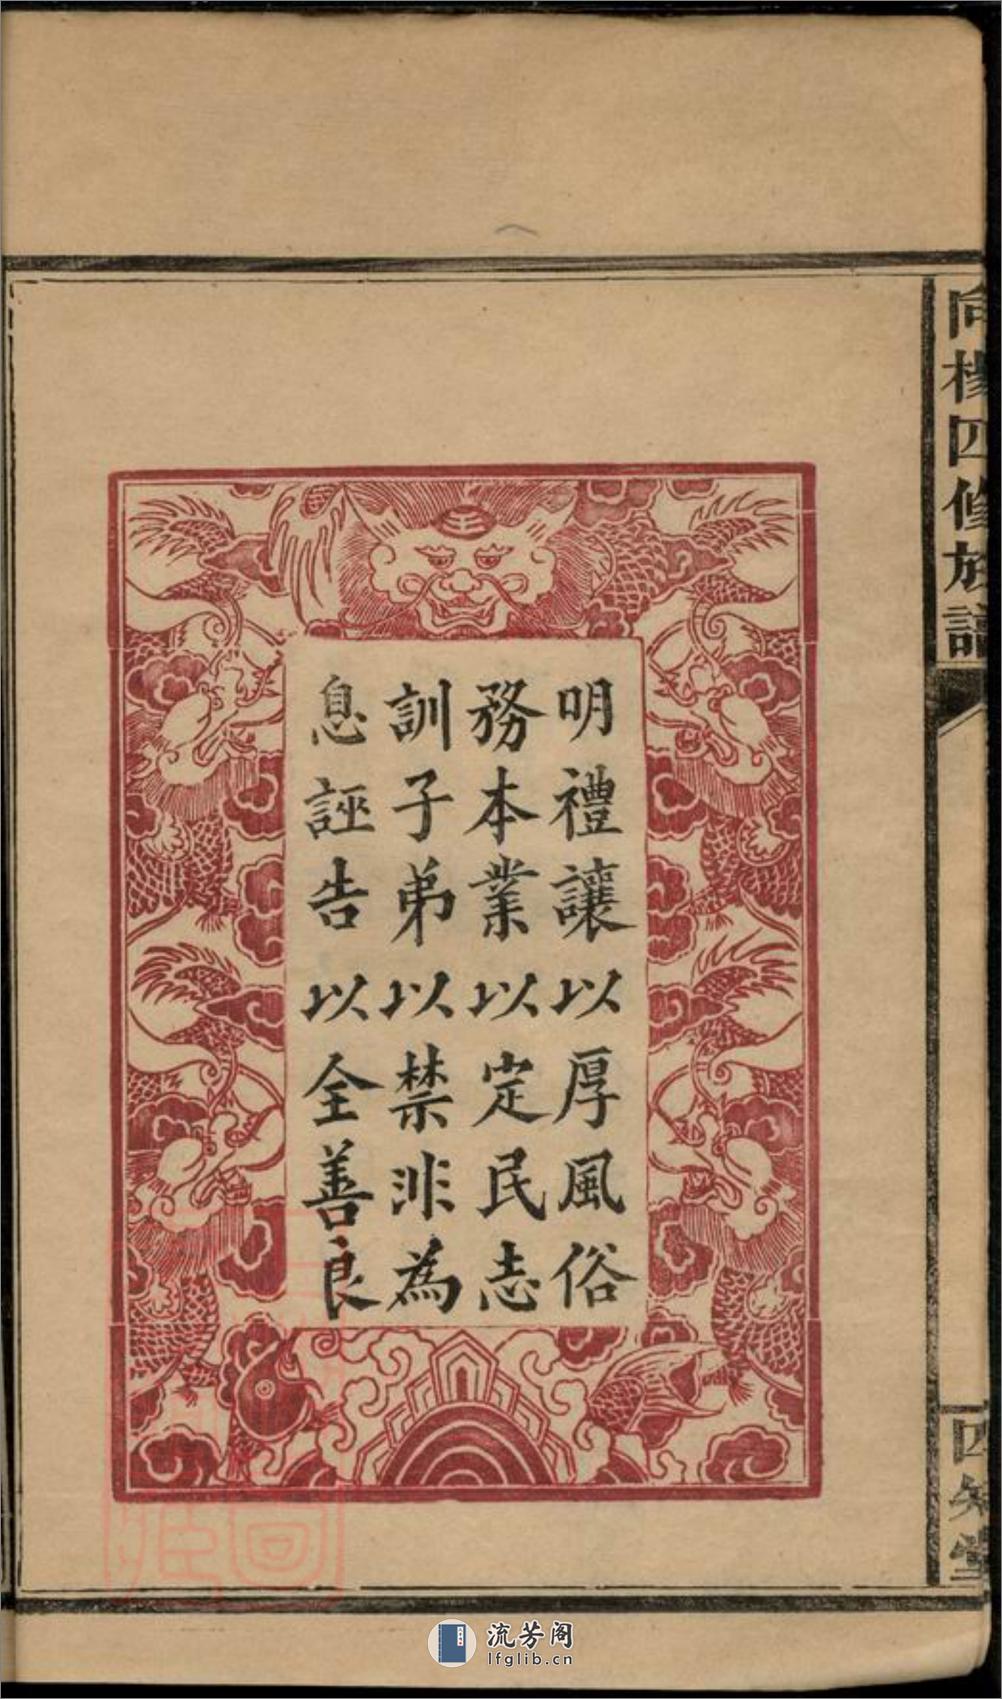 明禮讓以厚風俗
務本業以定民志
訓子弟以禁非為
息誣告以全善良
向楊四修族譜
四知堂
流芳阁
lfglib.cn